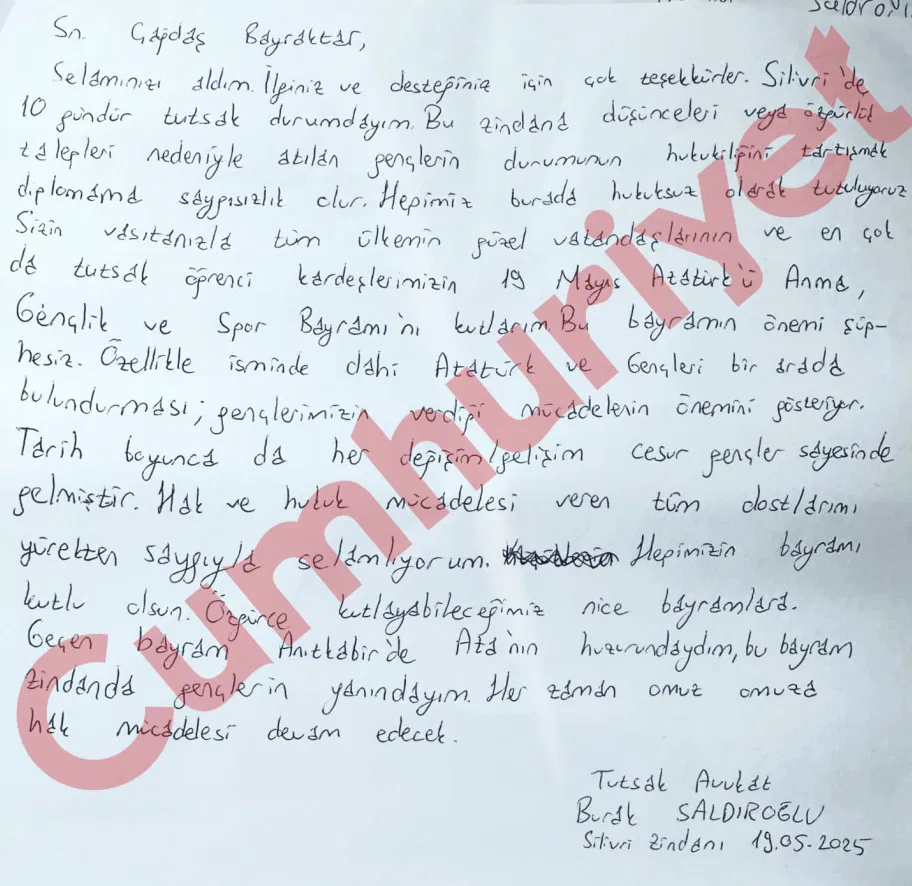 Saldıroğl
Sn. Çağdaş Bayraktar,
Selamınızı aldım. İlginiz ve desteğiniz için çok teşekkürler. Silivri'de
10 gündür tutsak durumdayım. Bu zindana düşünceleri veya özgürlük
talepleri nedeniyle atılan gençlerin durumunun hukukiliğini tartışmak
diplomama saygısızlık olur. Hepimiz burada hukuksuz olarak tutuluyoruz
Sizin vasıtanızla tüm ülkemin güzel vatandaşlarının ve en çok
da tutsak öğrenci kardeşlerimizin 19 Mayıs Atatürk'ü Anma,
Gençlik ve Spor Bayramı'nı kutlarım. Bu bayramın önemi şüp-
hesiz. Özellikle isminde dahi Atatürk ve Gençleri bir arada
bulundurması; gençlerimizin verdiği mücadelenin önemini gösteriyor.
Tarih boyunca da her değişim/gelişim cesur gençler sayesinde
gelmiştir. Hak ve hukuk mücadelesi veren tüm dostlarımı
yürekten saygıyla selamlıyorum. Hepimizin bayramı
kutlu olsun. Özgürce kutlayabileceğimiz nice bayramlara.
Geçen bayram Anıtkabir'de Ata'nın huzurundaydım, bu bayram
zindanda gençlerin yanındayım. Her zaman omuz omuza
hak mücadelesi devam edecek.
Tutsak Avukat
Burak SALDIROĞLU
Silivri Zindanı 19.05.2025
Cumhuriyet